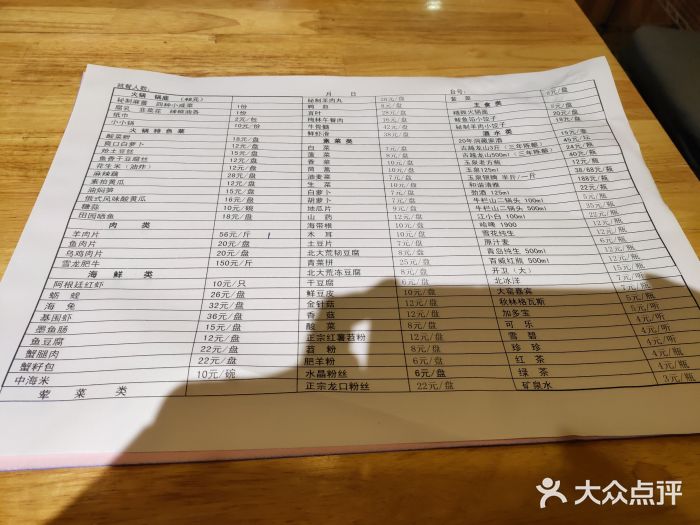 就餐人数： 月 日 台号：
火锅 锅底 （48元） 秘制羊肉丸 28元/盘
秘制麻酱 四种小咸菜 1份 鸭血 8元/盘 主食类
腐乳 韭菜花 辣椒油各 1份 百叶 28元/盘 精致火锅面
纸巾 2元/包 梅林午餐肉 鲅鱼馅小饺子 20元/盘
小小锅 10元/份 牛骨髓 42元/盘 秘制羊肉小饺子 18元/盘
火锅特色菜 鲜虾滑 38元/盘 酒水类
酸菜粉 15元/盘 素菜类 20年洞藏原酒
爽口白萝卜 12元/盘 白菜 7元/盘 古越龙山3斤（三年陈酿）
炝土豆丝 15元/盘 菠菜 8元/盘 古越龙山500ml（三年陈酿） 24元/瓶
鱼香干豆腐丝 15元/盘 香菜 10元/盘 玉泉老方瓶 40元/瓶
花生米（油炸） 12元/盘 茼蒿 10元/盘 玉泉125ml 12元/瓶
麻辣藕 28元/盘 油麦菜 7元/盘 玉泉银瓶 半斤/一斤 38/68元/瓶
素拍黄瓜 12元/盘 生菜 10元/盘 和谐清雅 188元/瓶
油焖笋 15元/盘 白萝卜 7元/盘 怡酒 125ml 22元/瓶
俄式风味酸黄瓜 16元/盘 地瓜片 9元/盘 牛栏山二锅头 100ml 5元/瓶
糖蒜 10元/碗 山药 12元/盘 牛栏山二锅头 500ml 35元/瓶
田园晒鱼 18元/盘 海带根 10元/盘 江小白 100ml 22元/瓶
肉类 木耳 10元/盘 哈啤 1900
羊肉片 56元/斤 土豆片 7元/盘 雪花纯生
鱼肉片 20元/盘 北大荒韧豆腐 6元/盘 原汁麦 6元/瓶
乌鸡肉片 20元/盘 青菜拼 25元/盘 青岛纯生 500ml 12元/瓶
雪龙肥牛 150元/斤 北大荒冻豆腐 8元/盘 百威红瓶 500ml
海鲜类 干豆腐 6元/盘 开卫（大） 15元/瓶
阿根廷红虾 10元/只 鲜豆皮 10元/盘 北冰洋 7元/瓶
蛎蝗 26元/盘 金针菇 12元/盘 大窑嘉宾
海兔 32元/盘 香菇 12元/盘 秋林格瓦斯 5元/瓶
基围虾 36元/盘 酸菜 8元/盘 加多宝
墨鱼肠 15元/盘 正宗红薯苕粉 12元/盘 可乐 4元/听
鱼豆腐 12元/盘 苕粉 8元/盘 雪碧 4元/听
蟹腿肉 22元/盘 肥羊粉 6元/盘 珍珍 4元/听
蟹籽包 22元/盘 水晶粉丝 6元/盘 红茶
中海米 10元/碗 正宗龙口粉丝 22元/盘 绿茶 4元/瓶
荤菜类 矿泉水 3元/瓶
大众点评